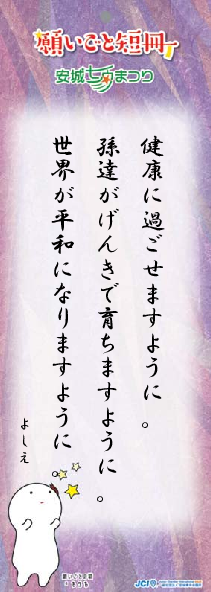 願いごと短冊
安城七夕まつり
健康に過ごせますように。
孫達がげんきで育ちますように。
世界が平和になりますように。
よしえ
JCI